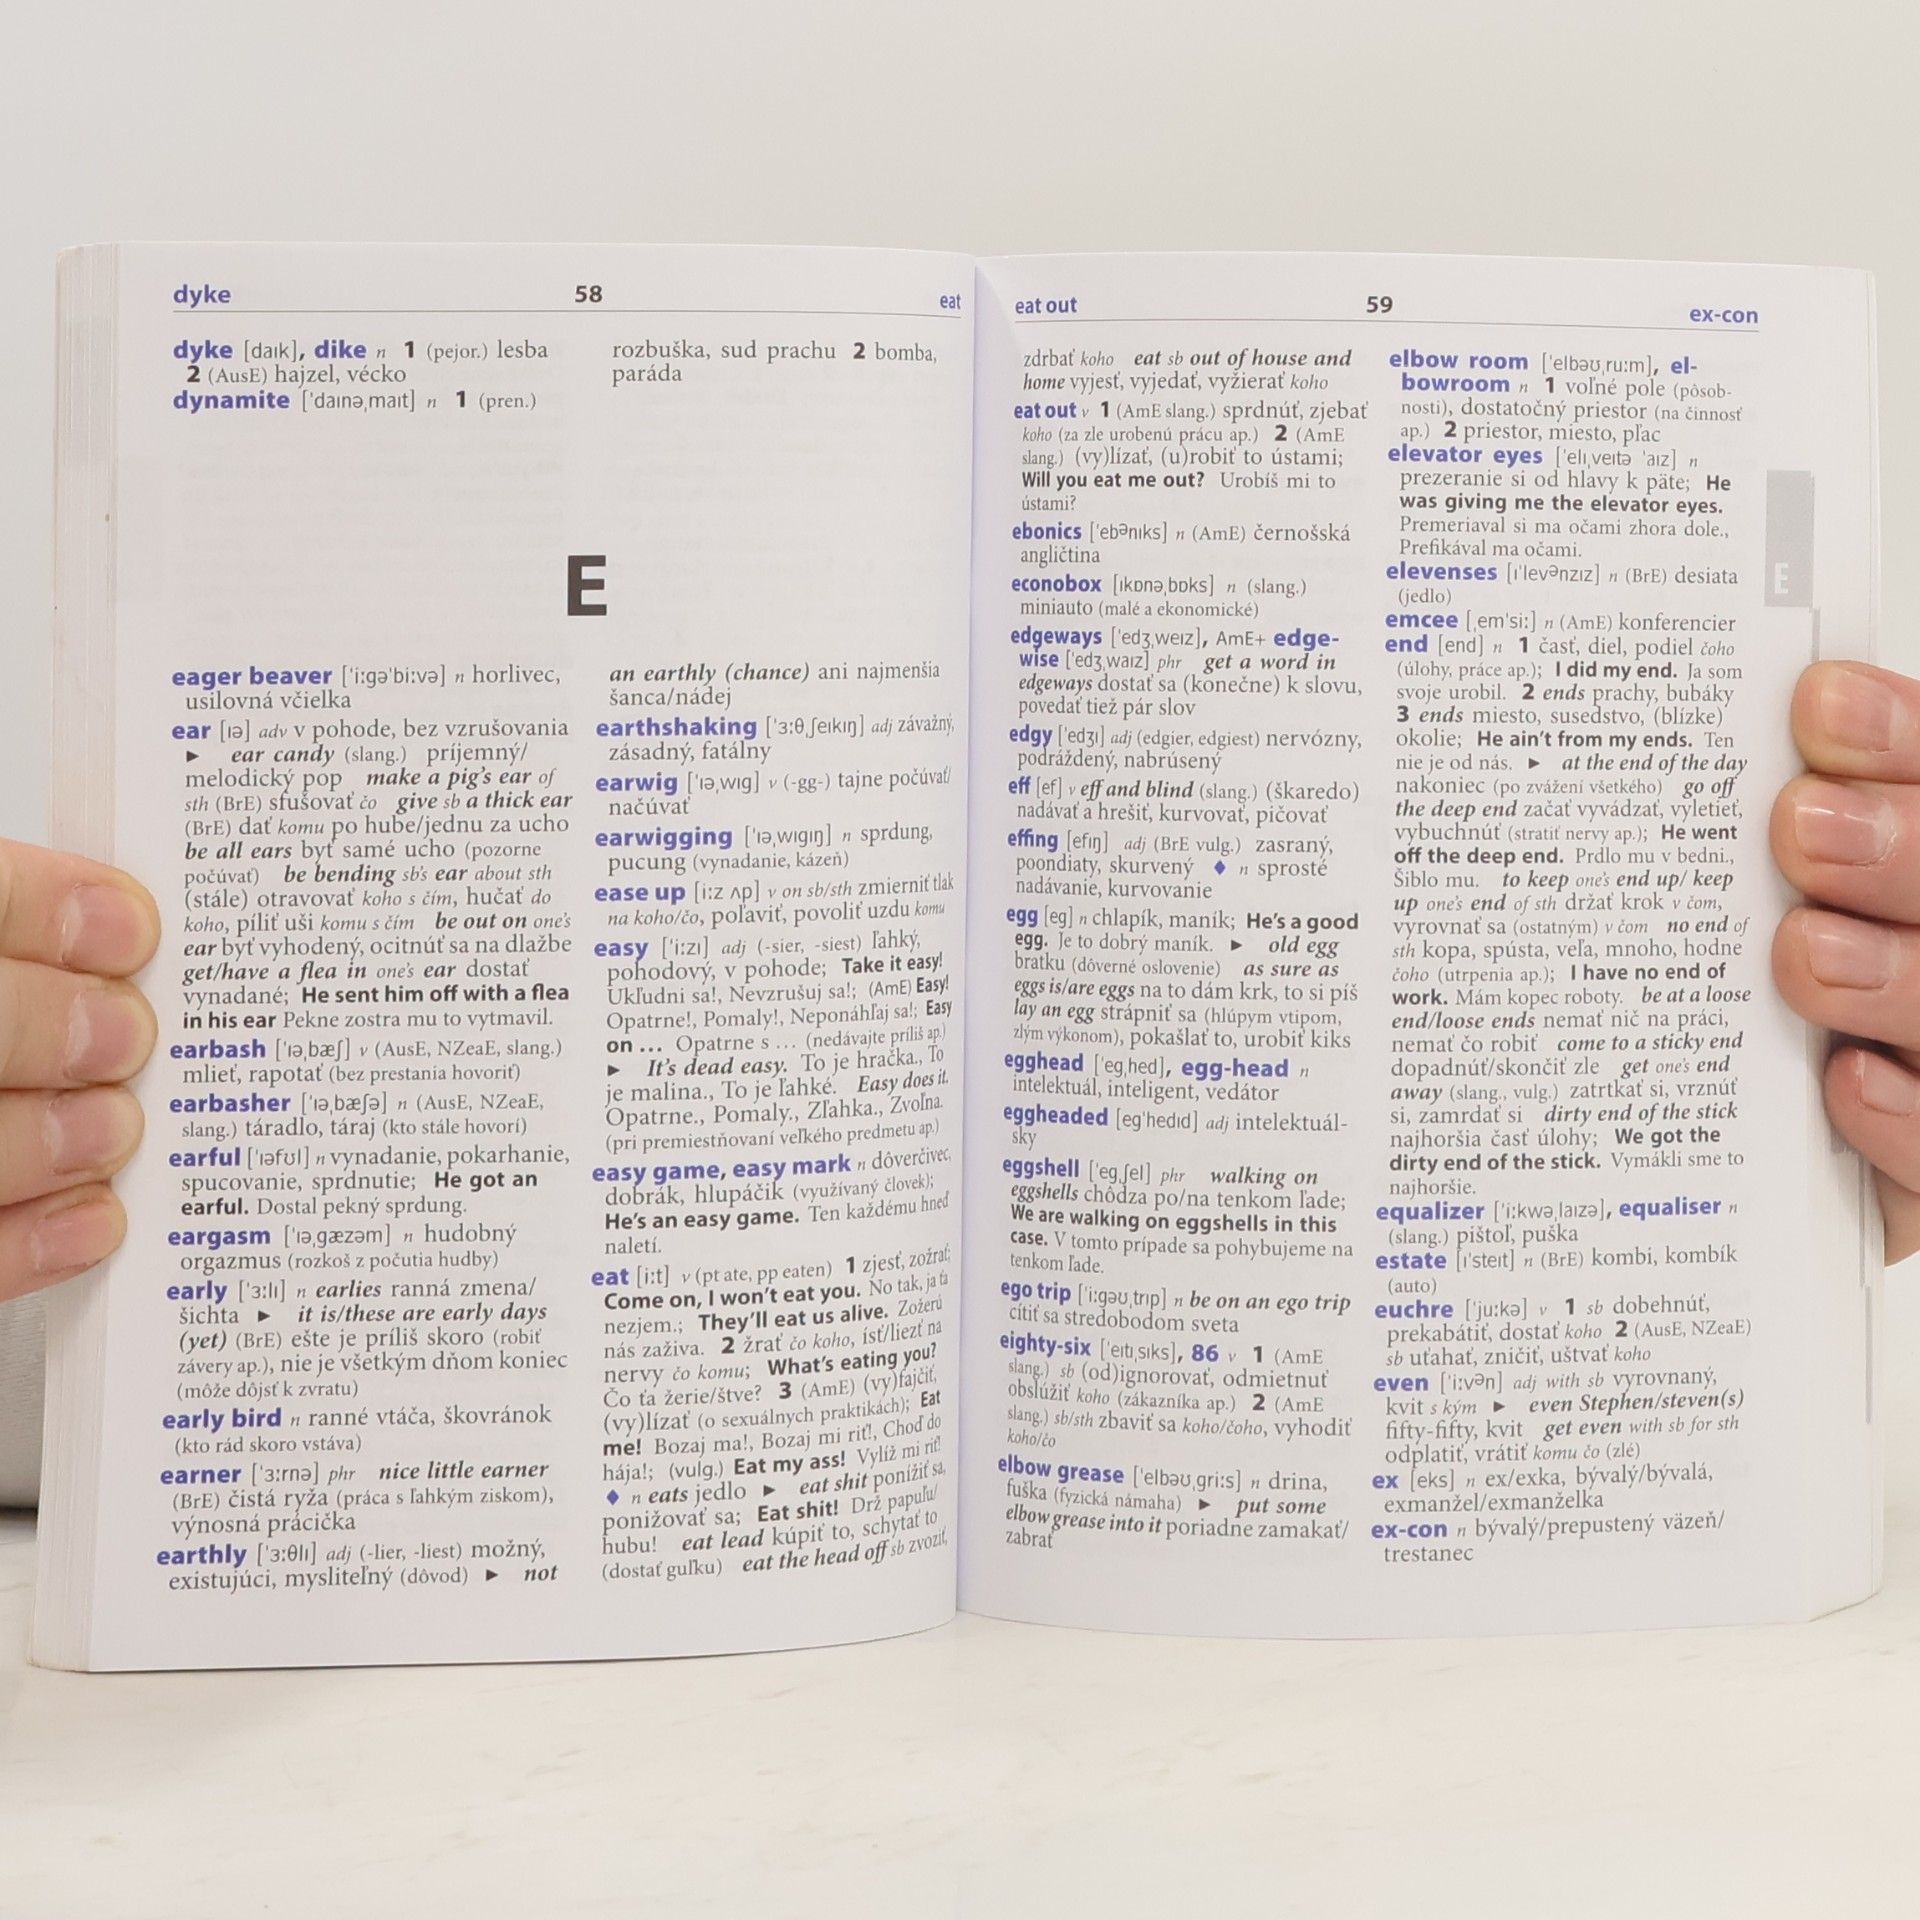 dyke 58 eat
dyke [daɪk], dike n 1 (pejor.) lesba
2 (AusE) hajzel, vécko
dynamite [ˈdaɪnəˌmaɪt] n 1 (pren.)
rozbuška, sud prachu 2 bomba,
paráda
E
eager beaver [ˈiːgəˈbiːvə] n horlivec,
usilovná včielka
ear [ɪə] adv v pohode, bez vzrušovania
► ear candy (slang.) príjemný/
melodický pop make a pig's ear of
sth (BrE) sfušovať čo give sb a thick ear
(BrE) dať komu po hube/jednu za ucho
be all ears byť samé ucho (pozorne
počúvať) be bending sb's ear about sth
(stále) otravovať koho s čím, hučať do
koho, píliť uši komu s čím be out on one's
ear byť vyhodený, ocitnúť sa na dlažbe
get/have a flea in one's ear dostať
vynadané; He sent him off with a flea
in his ear Pekne zostra mu to vytmavil.
earbash [ˈɪəˌbæʃ] v (AusE, NZeaE, slang.)
mlieť, rapotať (bez prestania hovoriť)
earbasher [ˈɪəˌbæʃə] n (AusE, NZeaE,
slang.) táradlo, táraj (kto stále hovorí)
earful [ˈɪəfʊl] n vynadanie, pokarhanie,
spucovanie, sprdnutie; He got an
earful. Dostal pekný sprdung.
eargasm [ˈɪəˌgæzəm] n hudobný
orgazmus (rozkoš z počutia hudby)
early [ˈɜːlɪ] n earlies ranná zmena/
šichta ► it is/these are early days
(yet) (BrE) ešte je príliš skoro (robiť
závery ap.), nie je všetkým dňom koniec
(môže dôjsť k zvratu)
early bird n ranné vtáča, škovránok
(kto rád skoro vstáva)
earner [ˈɜːrnə] phr nice little earner
(BrE) čistá ryža (práca s ľahkým ziskom),
výnosná prácička
earthly [ˈɜːθlɪ] adj (-lier, -liest) možný,
existujúci, mysliteľný (dôvod) ► not
an earthly (chance) ani najmenšia
šanca/nádej
earthshaking [ˈɜːθˌʃeɪkɪŋ] adj závažný,
zásadný, fatálny
earwig [ˈɪəˌwɪg] v (-gg-) tajne počúvať/
načúvať
earwigging [ˈɪəˌwɪgɪŋ] n sprdung,
pucung (vynadanie, kázeň)
ease up [iːz ʌp] v on sb/sth zmierniť tlak
na koho/čo, poľaviť, povoliť uzdu komu
easy [ˈiːzɪ] adj (-sier, -siest) ľahký,
pohodový, v pohode; Take it easy!
Ukľudni sa!, Nevzrušuj sa!; (AmE) Easy!
Opatrne!, Pomaly!, Neponáhľaj sa!; Easy
on ... Opatrne s ... (nedávajte príliš ap.)
► It's dead easy. To je hračka., To
je malina., To je ľahké. Easy does it.
Opatrne., Pomaly., Zľahka., Zvoľna.
(pri premiestňovaní veľkého predmetu ap.)
easy game, easy mark n dôverčivec,
dobrák, hlupáčik (využívaný človek);
He's an easy game. Ten každému hneď
naletí.
eat [iːt] v (pt ate, pp eaten) 1 zjesť, zožrať;
Come on, I won't eat you. No tak, ja ťa
nezjem.; They'll eat us alive. Zožerú
nás zaživa. 2 žrať čo koho, ísť/liezť na
nervy čo komu; What's eating you?
Čo ťa žerie/štve? 3 (AmE) (vy)fajčiť,
(vy)lízať (o sexuálnych praktikách); Eat
me! Bozaj ma!, Bozaj mi riť!, Choď do
hája!; (vulg.) Eat my ass! Vylíž mi riť!
♦ n eats jedlo ► eat shit ponížiť sa,
ponižovať sa; Eat shit! Drž papuľu/
hubu! eat lead kúpiť to, schytať to
(dostať guľku) eat the head off sb zvoziť,
eat out 59 ex-con
zdrbať koho eat sb out of house and
home vyjesť, vyjedať, vyžierať koho
eat out v 1 (AmE slang.) sprdnúť, zjebať
koho (za zle urobenú prácu ap.) 2 (AmE
slang.) (vy)lízať, (u)robiť to ústami;
Will you eat me out? Urobíš mi to
ústami?
ebonics [ˈebənɪks] n (AmE) černošská
angličtina
econobox [ɪkɒnəˌbɒks] n (slang.)
miniauto (malé a ekonomické)
edgeways [ˈedʒˌweɪz], AmE+ edge-
wise [ˈedʒˌwaɪz] phr get a word in
edgeways dostať sa (konečne) k slovu,
povedať tiež pár slov
edgy [ˈedʒɪ] adj (edgier, edgiest) nervózny,
podráždený, nabrúsený
eff [ef] v eff and blind (slang.) (škaredo)
nadávať a hrešiť, kurvovať, pičovať
effing [efɪŋ] adj (BrE vulg.) zasraný,
poondiaty, skurvený ♦ n sprosté
nadávanie, kurvovanie
egg [eg] n chlapík, maník; He's a good
egg. Je to dobrý maník. ► old egg
bratku (dôverné oslovenie) as sure as
eggs is/are eggs na to dám krk, to si píš
lay an egg strápniť sa (hlúpym vtipom,
zlým výkonom), pokašlať to, urobiť kiks
egghead [ˈegˌhed], egg-head n
intelektuál, inteligent, vedátor
eggheaded [egˈhedɪd] adj intelektuál-
sky
eggshell [ˈegˌʃel] phr walking on
eggshells chôdza po/na tenkom ľade;
We are walking on eggshells in this
case. V tomto prípade sa pohybujeme na
tenkom ľade.
ego trip [ˈiːgəʊˌtrɪp] n be on an ego trip
cítiť sa stredobodom sveta
eighty-six [ˈeɪtɪˌsɪks], 86 v 1 (AmE
slang.) sb (od)ignorovať, odmietnuť
obslúžiť koho (zákazníka ap.) 2 (AmE
slang.) sb/sth zbaviť sa koho/čoho, vyhodiť
koho/čo
elbow grease [ˈelbəʊˌgriːs] n drina,
fuška (fyzická námaha) ► put some
elbow grease into it poriadne zamakať/
zabrať
elbow room [ˈelbəʊˌruːm], el-
bowroom n 1 voľné pole (pôsob-
nosti), dostatočný priestor (na činnosť
ap.) 2 priestor, miesto, pľac
elevator eyes [ˈelɪˌveɪtə ˈaɪz] n
prezeranie si od hlavy k päte; He
was giving me the elevator eyes.
Premeriaval si ma očami zhora dole.,
Prefikával ma očami.
elevenses [ɪˈlevənzɪz] n (BrE) desiata
(jedlo)
emcee [ˌemˈsiː] n (AmE) konferencier
end [end] n 1 časť, diel, podiel čoho
(úlohy, práce ap.); I did my end. Ja som
svoje urobil. 2 ends prachy, bubáky
3 ends miesto, susedstvo, (blízke)
okolie; He ain't from my ends. Ten
nie je od nás. ► at the end of the day
nakoniec (po zvážení všetkého) go off
the deep end začať vyvádzať, vyletieť,
vybuchnúť (stratiť nervy ap.); He went
off the deep end. Prdlo mu v bedni.,
Šiblo mu. to keep one's end up/ keep
up one's end of sth držať krok v čom,
vyrovnať sa (ostatným) v čom no end of
sth kopa, spústa, veľa, mnoho, hodne
čoho (utrpenia ap.); I have no end of
work. Mám kopec roboty. be at a loose
end/loose ends nemať nič na práci,
nemať čo robiť come to a sticky end
dopadnúť/skončiť zle get one's end
away (slang., vulg.) zatrtkať si, vrznúť
si, zamrdať si dirty end of the stick
najhoršia časť úlohy; We got the
dirty end of the stick. Vymákli sme to
najhoršie.
equalizer [ˈiːkwəˌlaɪzə], equaliser n
(slang.) pištoľ, puška
estate [ɪˈsteɪt] n (BrE) kombi, kombík
(auto)
euchre [ˈjuːkə] v 1 sb dobehnúť,
prekabátiť, dostať koho 2 (AusE, NZeaE)
sb uťahať, zničiť, uštvať koho
even [ˈiːvən] adj with sb vyrovnaný,
kvit s kým ► even Stephen/steven(s)
fifty-fifty, kvit get even with sb for sth
odplatiť, vrátiť komu čo (zlé)
ex [eks] n ex/exka, bývalý/bývalá,
exmanžel/exmanželka
ex-con n bývalý/prepustený väzeň/
trestanec
E